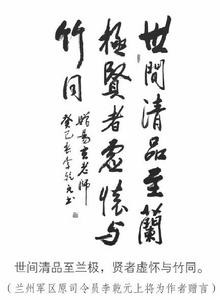 世間清品至蘭
極賢者虛懷与
竹同
贈易玄老師
癸巳春李乾元书
世间清品至兰极，贤者虚怀与竹同。
（兰州军区原司令员李乾元上将为作者赠言）